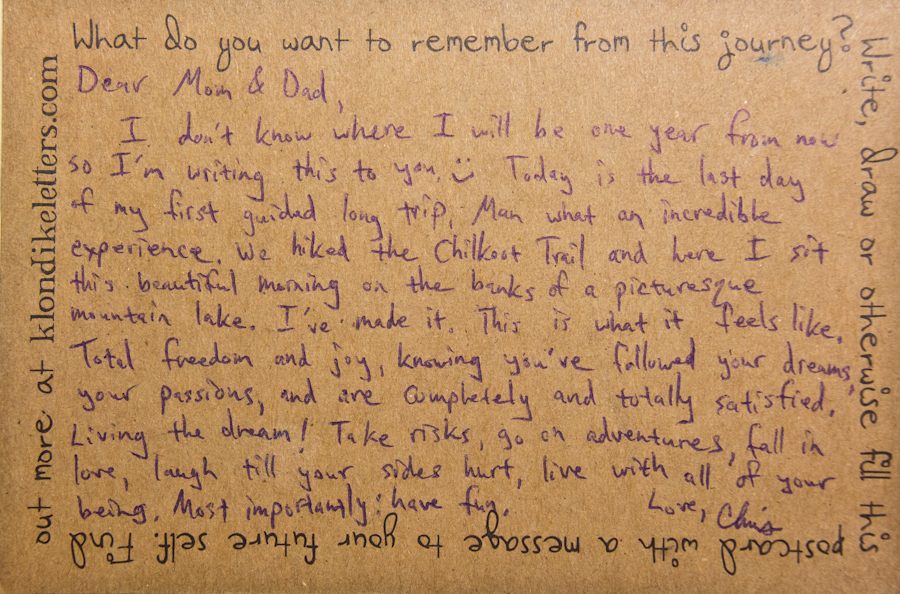 What do you want to remember from this journey?
Write, draw or otherwise fill this
postcard with a message to your future self. Find
out more at klondikeletters.com
Dear Mom & Dad,
I don't know where I will be one year from now
so I'm writing this to you. :) Today is the last day
of my first guided long trip. Man what an incredible
experience. We hiked the Chilkoot Trail and here I sit
this beautiful morning on the banks of a picturesque
mountain lake. I've made it. This is what it feels like.
Total freedom and joy, knowing you've followed your dreams,
your passions, and are completely and totally satisfied.
Living the dream! Take risks, go on adventures, fall in
love, laugh till your sides hurt, live with all of your
being. Most importantly: have fun.
Love, Chris